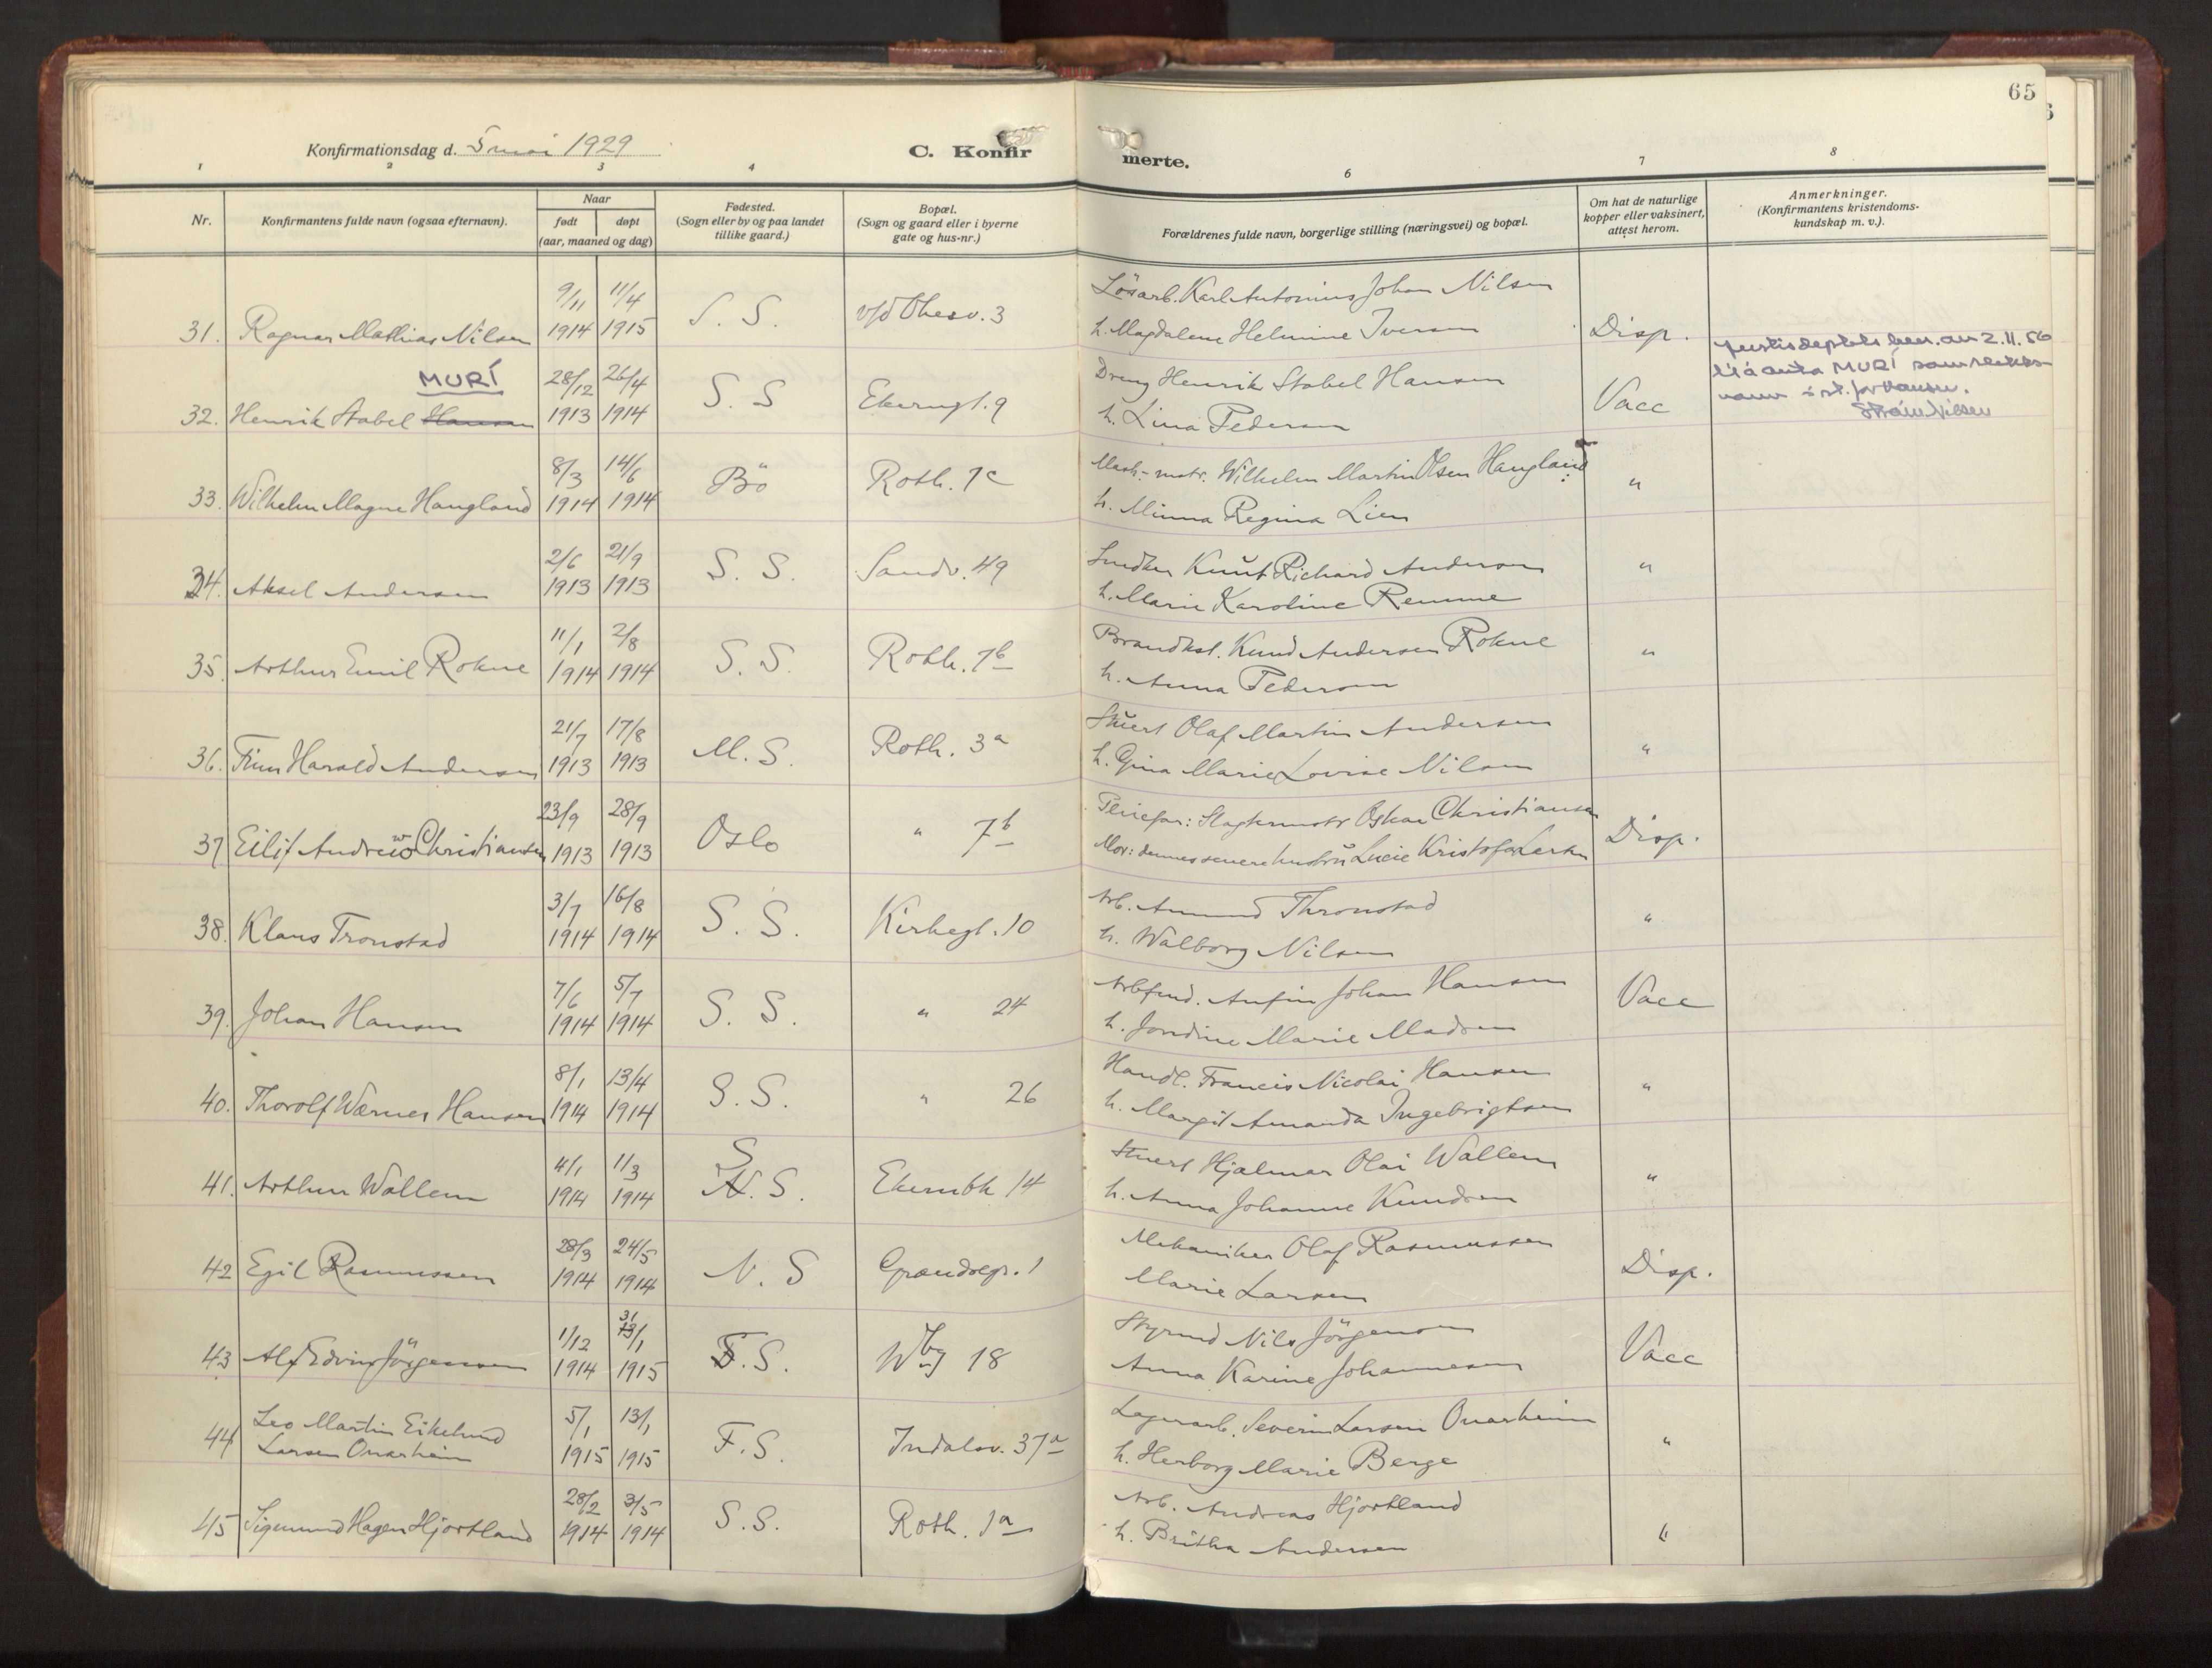 65
Konfirmationsdag d. 5 mai 1929
C. Konfirmerte.
1 2 3 4 6 7 8
Nr.
Konfirmantens fulde navn (ogsaa efternavn).
Naar
født døpt
(aar, maaned og dag)
Fødested.
(Sogn eller by og paa landet
tillike gaard.)
Bopæl.
(Sogn og gaard eller i byerne
gate og hus-nr.)
Forældrenes fulde navn, borgerlige stilling (næringsvei) og bopæl.
Om hat de naturlige
kopper eller vaksinert,
attest herom.
Anmerkninger.
(Konfirmantens kristendoms-
kundskap m. v.).
9/11 11/4 Lösarb. Karl Antonius Johan Nilsen
31. Ragnar Mathias Nilsen 1914 1915 S. S. v/d 3 h. Magdalene Helmine Iversen Disp.
MURI 28/12 26/4 Dreng Henrik Stabel Hansen
32. Henrik Stabel Hansen 1913 1914 S. S Ekerngt. 9 h. Lina Pedersen Vacc
justisdeptets bev. av 2.11.56
til å anta MURI som slekts-
navn i st. for Hansen.
8/3 14/6 Mask.-mstr. Wilhelm Martin Olsen Haugland
33. Wilhelm Magne Haugland 1914 1914 Bö Roth. 7c h. Minna Regina Lien "
2/6 21/9 Snedker Knut Richard Andersen
34. Aksel Andersen 1913 1913 S. S. Sandv. 49 h. Marie Karoline Remme "
11/1 2/8 Brandkst. Knud Andersen Rokne
35. Arthur Emil Rokne 1914 1914 S. S. Roth. 7b h. Anna Pedersen "
21/7 17/8 Stuert Olaf Martin Andersen
36. Finn Harald Andersen 1913 1913 M. S. Roth. 3a h. Gina Marie Lovise Nilsen "
23/9 28/9 Pleiefar: Slagtermstr Oskar Christiansen
37 Eilif Andrew Christiansen 1913 1913 Oslo " 7b Mor: dennes senere hustru Lucie Kristofa Larsen Disp.
3/7 16/8 Arb. Amund Thronstad
38. Klaus Tronstad 1914 1914 S. S. Kirkegt. 10 h. Walborg Nilsen "
7/6 5/7 Arbfmd. Anfin Johan Hansen
39. Johan Hansen 1914 1914 S. S. " 24 h. Jondine Marie Madsen Vacc
8/1 13/4 Handl. Francis Nicolai Hansen
40. Thorolf Werner Hansen 1914 1914 S. S. " 26 h. Margit Amanda Ingebrigtsen "
4/1 1/3 S Stuert Hjalmar Olai Wallem
41. Arthur Wallem 1914 1914 N. S. Ekernbk 14 h. Anna Johanne Knudsen "
28/3 24/5 Mekaniker Olaf Rasmussen
42 Egil Rasmussen 1914 1914 N. S Grændsegr. 1 Marie Larsen Disp.
1/12 31/1 Styrmd Nils Jörgensen
43 Alf Edvin Jörgensen 1914 1915 F. S. Wbg 18 Anna Karine Johannesen Vacc
Leo Martin Eikelund 5/1 13/1 Lagerarb. Severin Larsen Onarheim
44 Larsen Onarheim 1915 1915 F. S. Indalsv. 37a h. Herborg Marie Berge "
28/2 3/5 Arb. Andreas Hjortland
45 Sigmund Hagen Hjortland 1914 1914 S. S. Roth. 1a h. Britha Andersen "